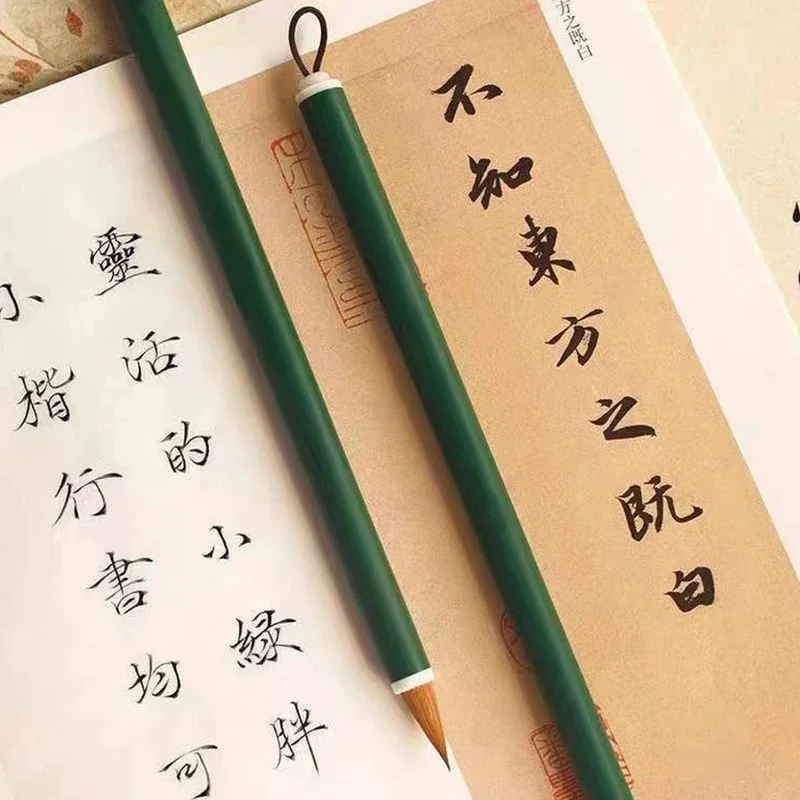 方之既白
不知東方之既白
靈活的小緑胖
小楷行書均可